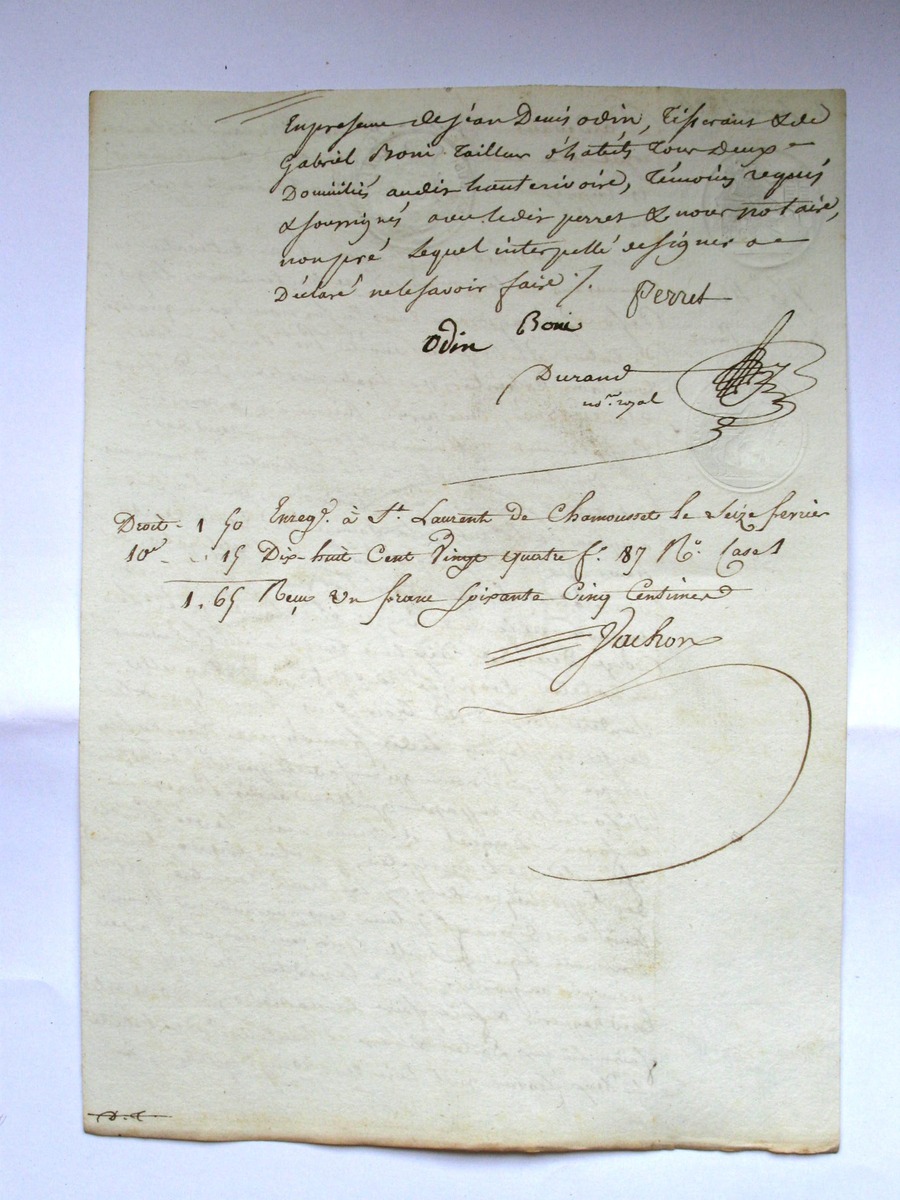 En presence de jean Denis odin, Tisserant & de
Gabriel Boni Tailleur d'habits Tous Deux
Domiciliés audit hauterivoire, Témoins requis
& soussignés avec ledit perret & nous notaire,
non pré Lequel interpellé de signer a
Déclaré ne le savoir faire ./. Perret
Odin Boni
Durand
no.re royal
Droit - 1 50 Enreg.é à St. Laurent de Chamousset le Seize fevrier
10e - . 15 Dix-huit Cent Vingt quatre f.o 87 R.o Case 1
1. 65 Reçu un franc Soixante Cinq Centimes
Vachon